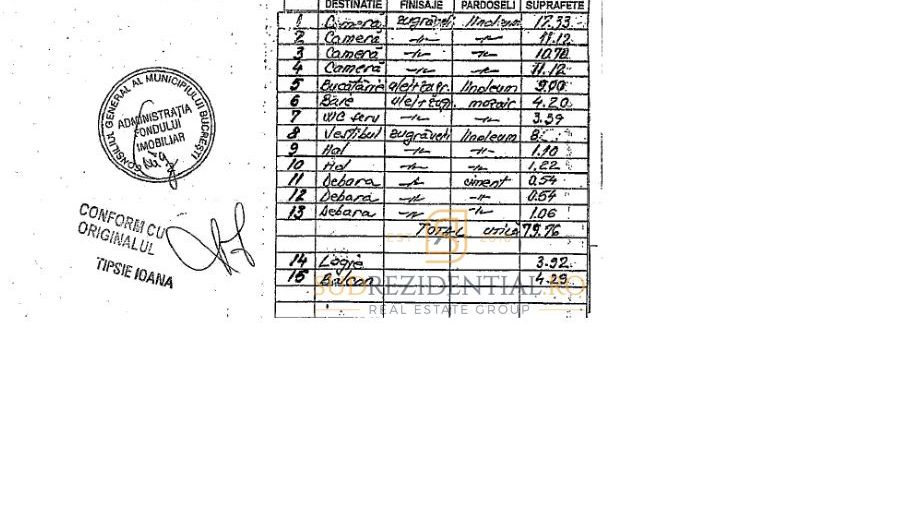 DESTINATIE FINISAJE PARDOSELI SUPRAFETE
1 Cameră zugrăveli linoleum 17.33
2 Cameră -//- -//- 11.12
3 Cameră -//- -//- 10.70
4 Cameră -//- -//- 11.12
5 Bucătărie linoleum 9.00
6 Baie mozaic 4.20
7 WC serv -//- -//- 3.59
8 Vestibul zugrăveli linoleum 8.
9 Hol -//- -//- 1.10
10 Hol -//- -//- 1.22
11 Debara -//- ciment 0.54
12 Debara -//- -//- 0.64
13 Debara -//- -//- 1.06
TOTAL utilă 79.76
14 Logie 3.92
15 Balcon 4.29
CONSILIUL GENERAL AL MUNICIPIULUI BUCUREȘTI
ADMINISTRAȚIA
FONDULUI
IMOBILIAR
CONFORM CU
ORIGINALUL
TIPSIE IOANA
SUDREZIDENTIAL.RO
REAL ESTATE GROUP